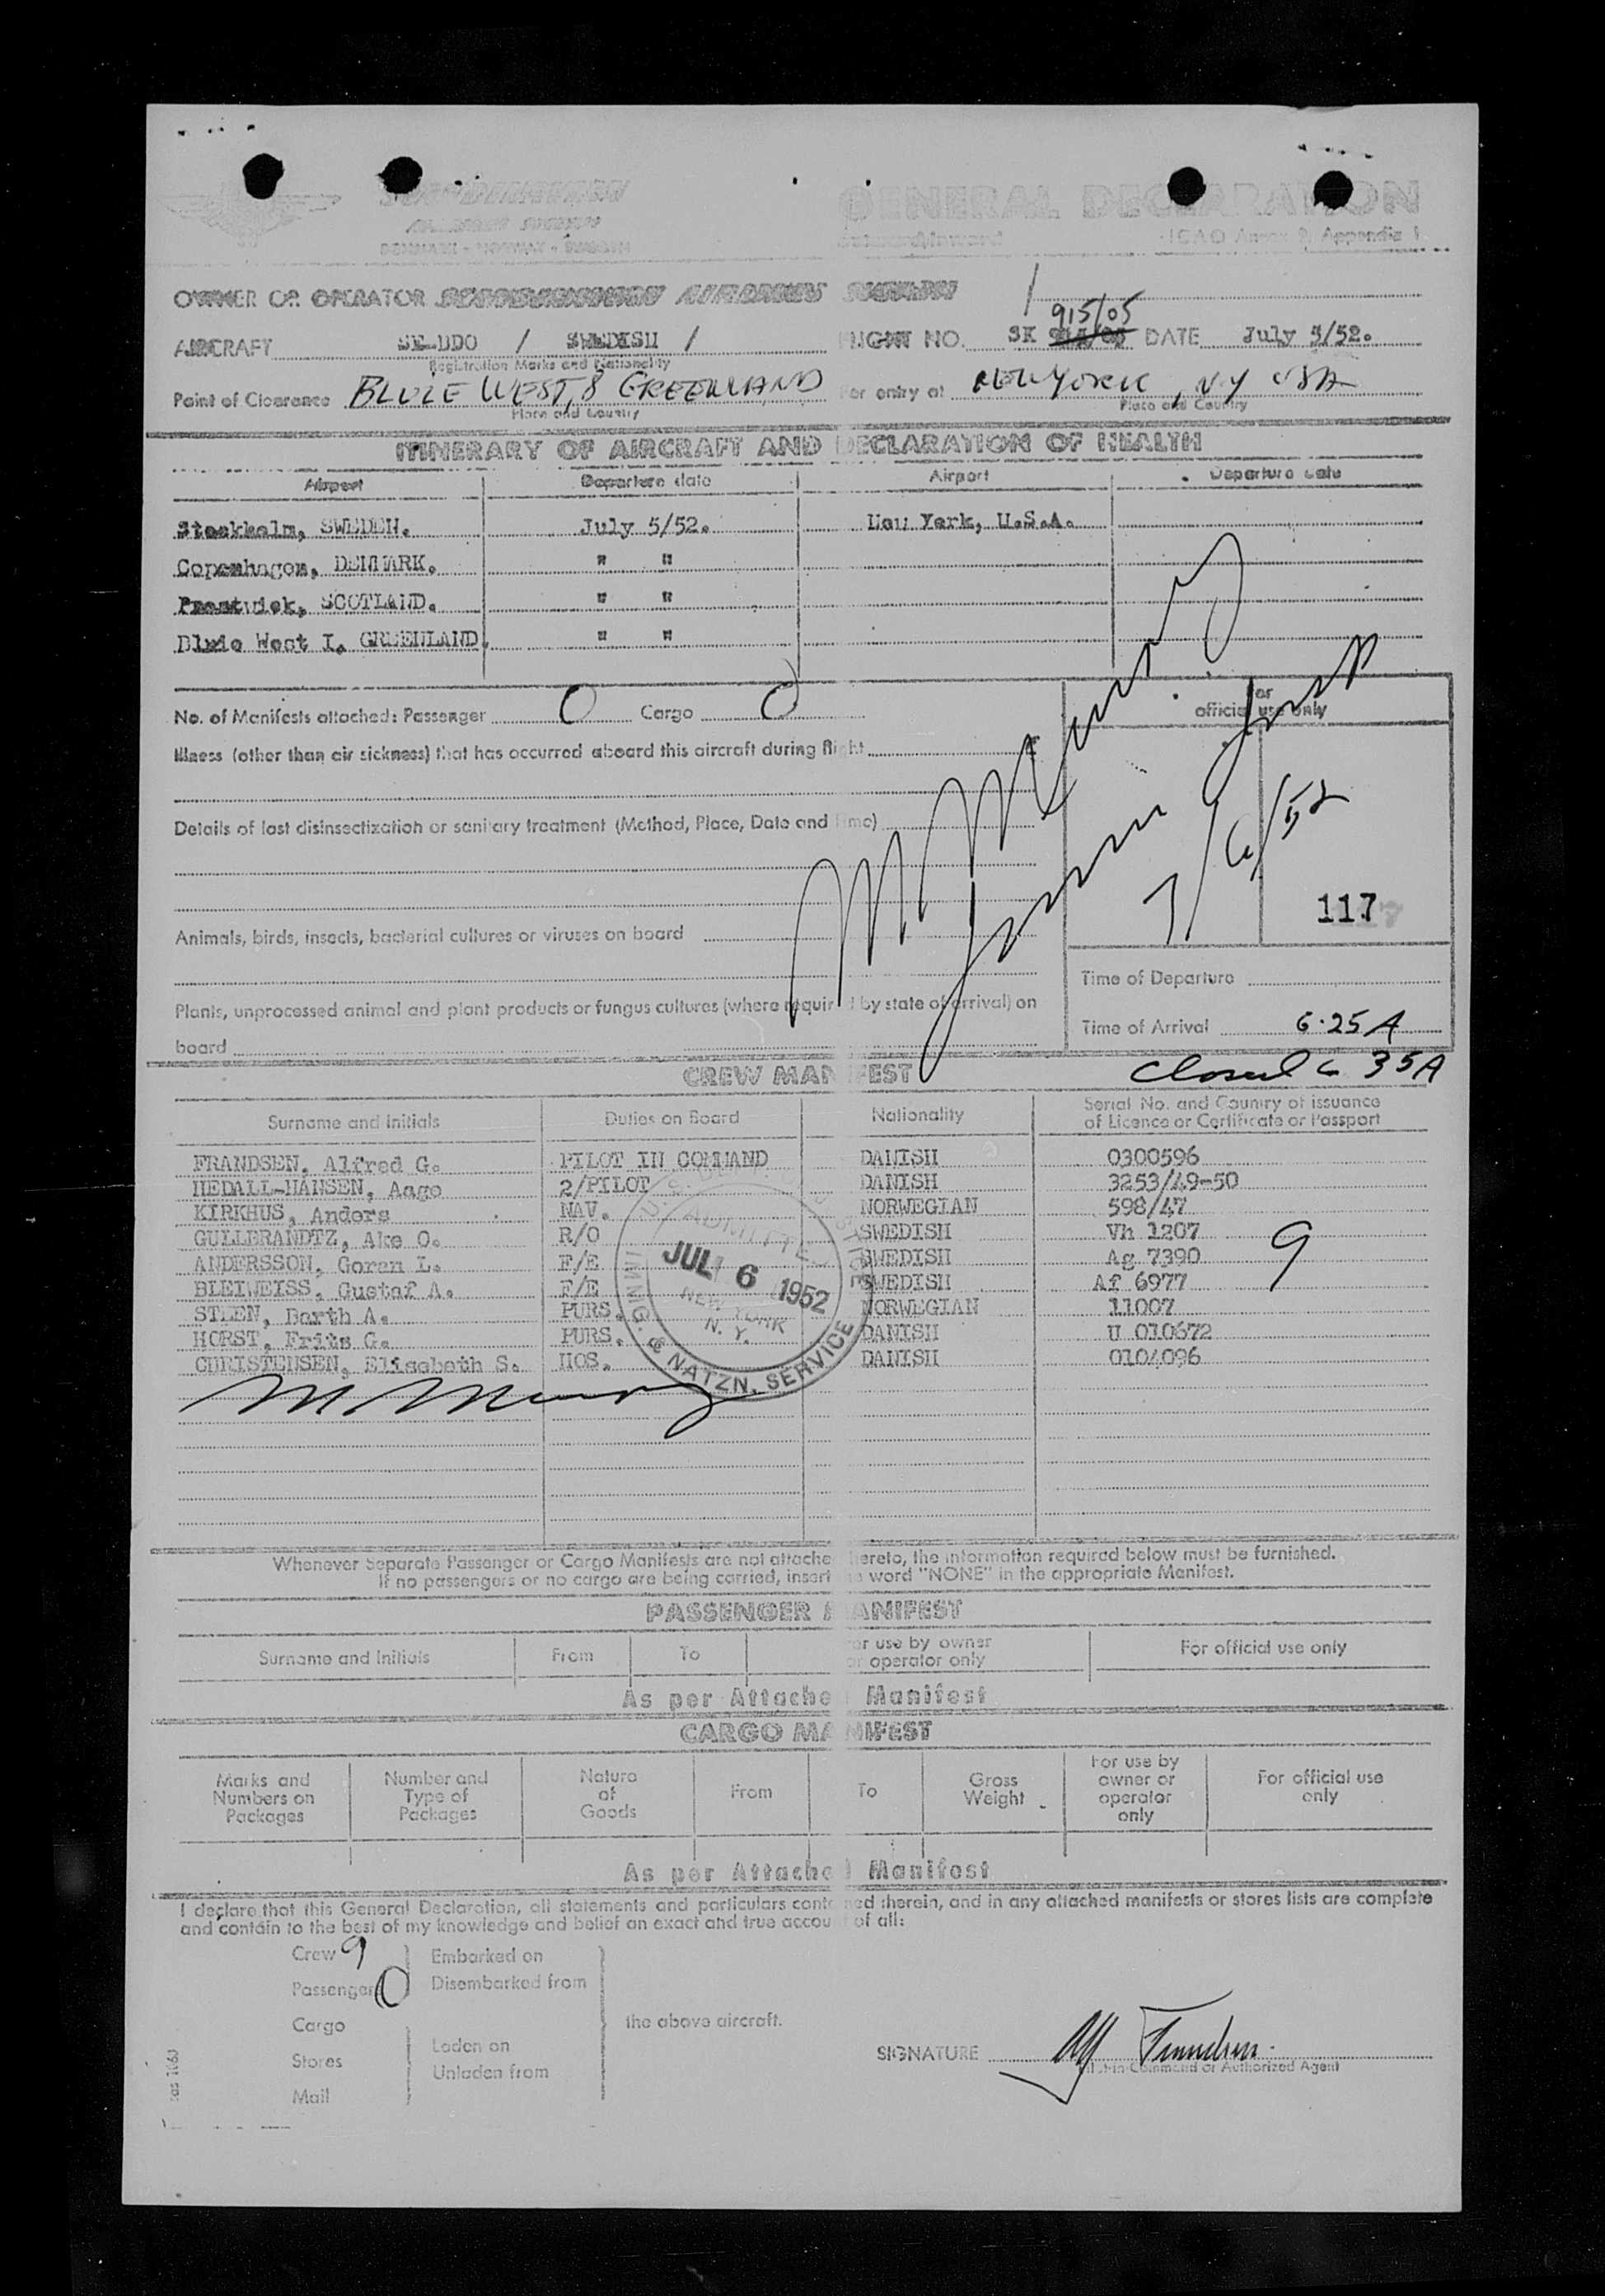 SCANDINAVIAN
AIRLINES SYSTEM
DENMARK - NORWAY - SWEDEN
GENERAL DECLARATION
Outward/Inward
ICAO Annex 9, Appendix 1
OWNER OR OPERATOR SCANDINAVIAN AIRLINES SYSTEM
915/05
AIRCRAFT SE-DDO / SWEDISH / FLIGHT NO. SK DATE July 5/52.
Registration Marks and Nationality
Point of Clearance BLUIE WEST, 8 GREENLAND For entry at NEW YORK, NY USA
Place and Country Place and Country
ITINERARY OF AIRCRAFT AND DECLARATION OF HEALTH
Airport Departure date Airport Departure date
Stockholm, SWEDEN. July 5/52. New York, U.S.A.
Copenhagen, DENMARK. " "
Prestwick, SCOTLAND. " "
Bluie West I, GREENLAND. " "
No. of Manifests attached: Passenger 0 Cargo 0
For
official use only
Illness (other than air sickness) that has occurred aboard this aircraft during flight
Details of last disinsectization or sanitary treatment (Method, Place, Date and Time)
7/6/52
117
Animals, birds, insects, bacterial cultures or viruses on board
Time of Departure
Plants, unprocessed animal and plant products or fungus cultures (where required by state of arrival) on
board
Time of Arrival 6.25 A
Closed 6 35A
CREW MANIFEST
Surname and Initials Duties on Board Nationality Serial No. and Country of issuance
of Licence or Certificate or Passport
FRANDSEN, Alfred G. PILOT IN COMMAND DANISH 0300596
HEDALL-HANSEN, Aage 2/PILOT DANISH 3253/49-50
KIRKHUS, Anders NAV. NORWEGIAN 598/47
GULLBRANDTZ, Ake O. R/O SWEDISH Vh 1207
ANDERSSON, Goran L. F/E SWEDISH Ag 7390
BLEIWEISS, Gustaf A. F/E SWEDISH Af 6977
STEEN, Barth A. PURS. NORWEGIAN 11007
HORST, Frits G. PURS. DANISH U 010672
CHRISTENSEN, Elisabeth S. HOS. DANISH 0104096
9
ADMITTED
JUL 6 1952
NEW YORK
N. Y.
IMMIG. & NATZN. SERVICE
Whenever Separate Passenger or Cargo Manifests are not attached hereto, the information required below must be furnished.
If no passengers or no cargo are being carried, insert the word "NONE" in the appropriate Manifest.
PASSENGER MANIFEST
Surname and Initials From To For use by owner
or operator only For official use only
As per Attached Manifest
CARGO MANIFEST
Marks and
Numbers on
Packages
Number and
Type of
Packages
Nature
of
Goods
From To
Gross
Weight
For use by
owner or
operator
only
For official use
only
As per Attached Manifest
I declare that this General Declaration, all statements and particulars contained therein, and in any attached manifests or stores lists are complete
and contain to the best of my knowledge and belief an exact and true account of all:
Crew 9 Embarked on
Passengers 0 Disembarked from
Cargo
the above aircraft.
Laden on
Stores
Unladen from
Mail
SIGNATURE Alf Frandsen
Pilot-in-Command or Authorized Agent